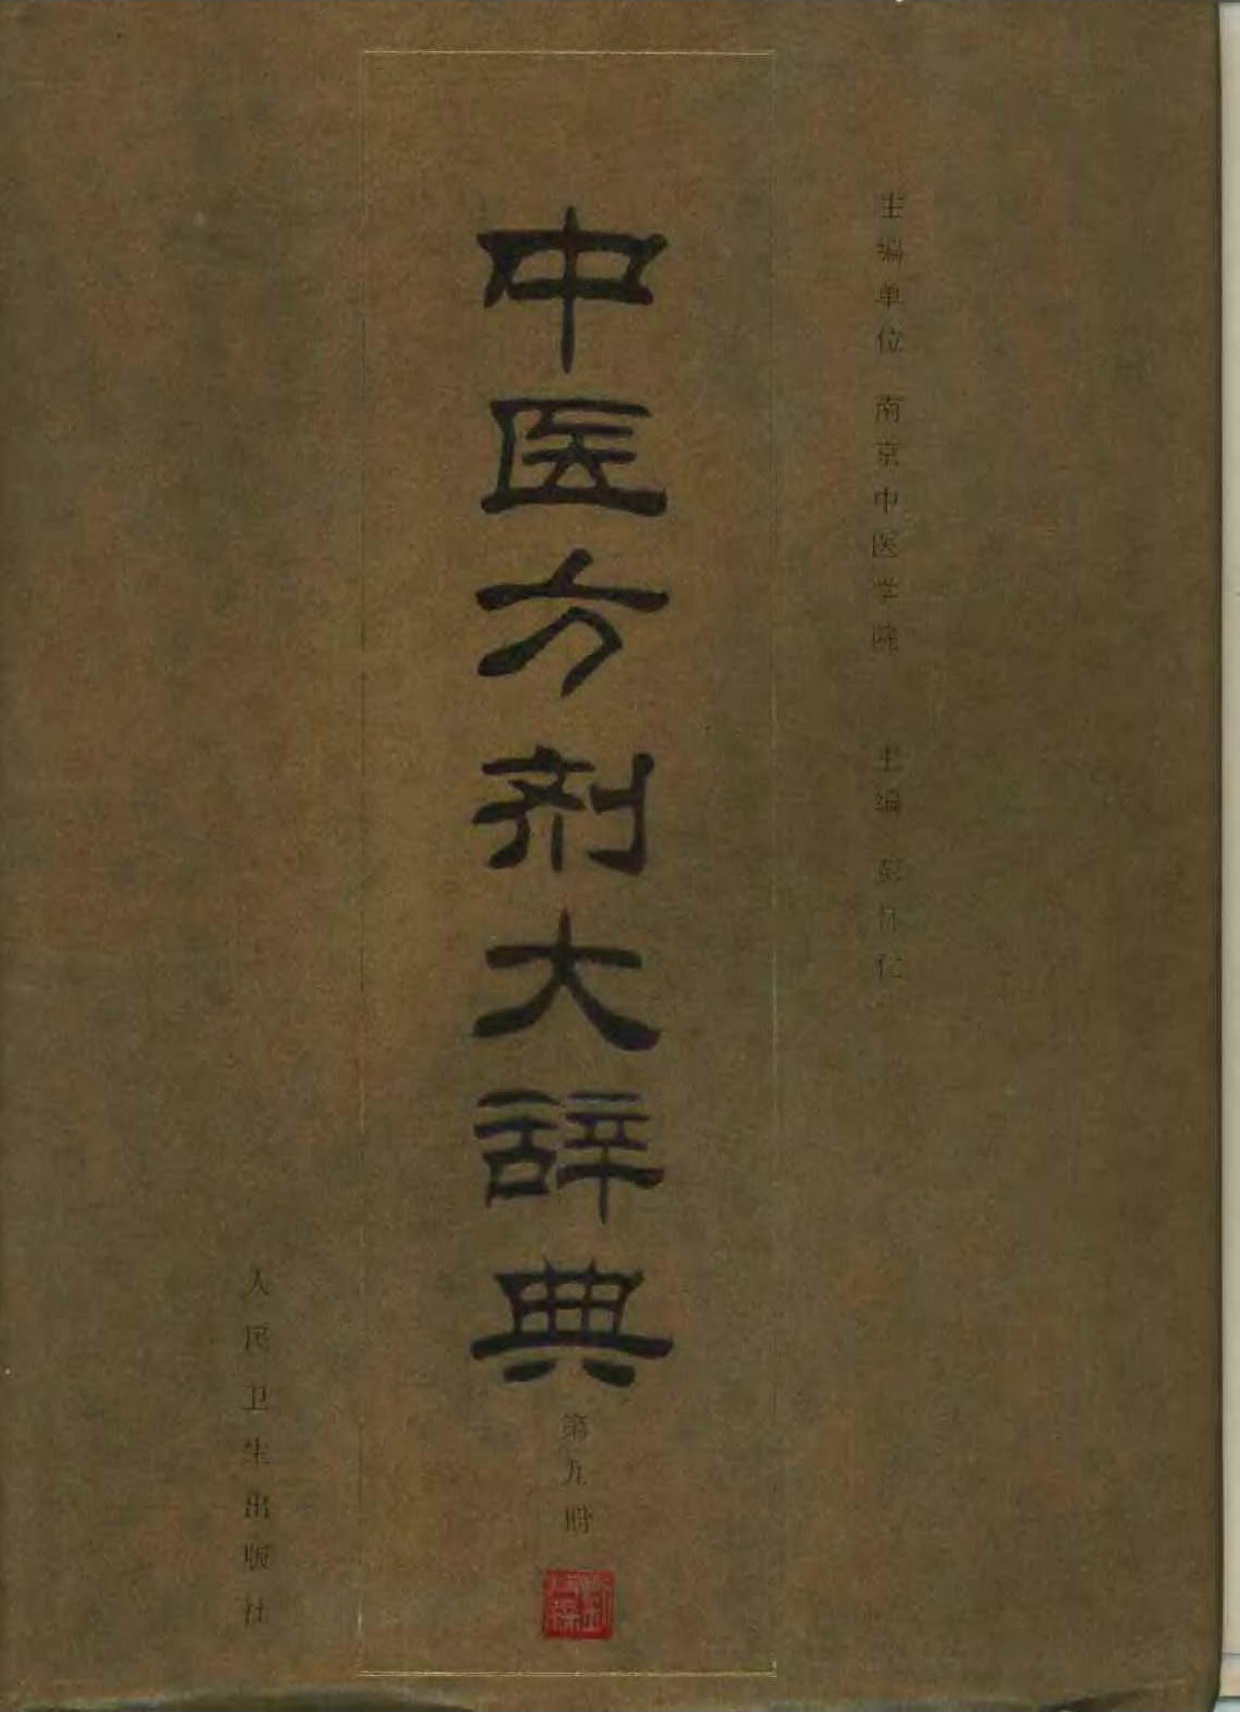 主编单位 南京中医学院 主编 彭怀仁
中医方剂大辞典
第九册
人民卫生出版社